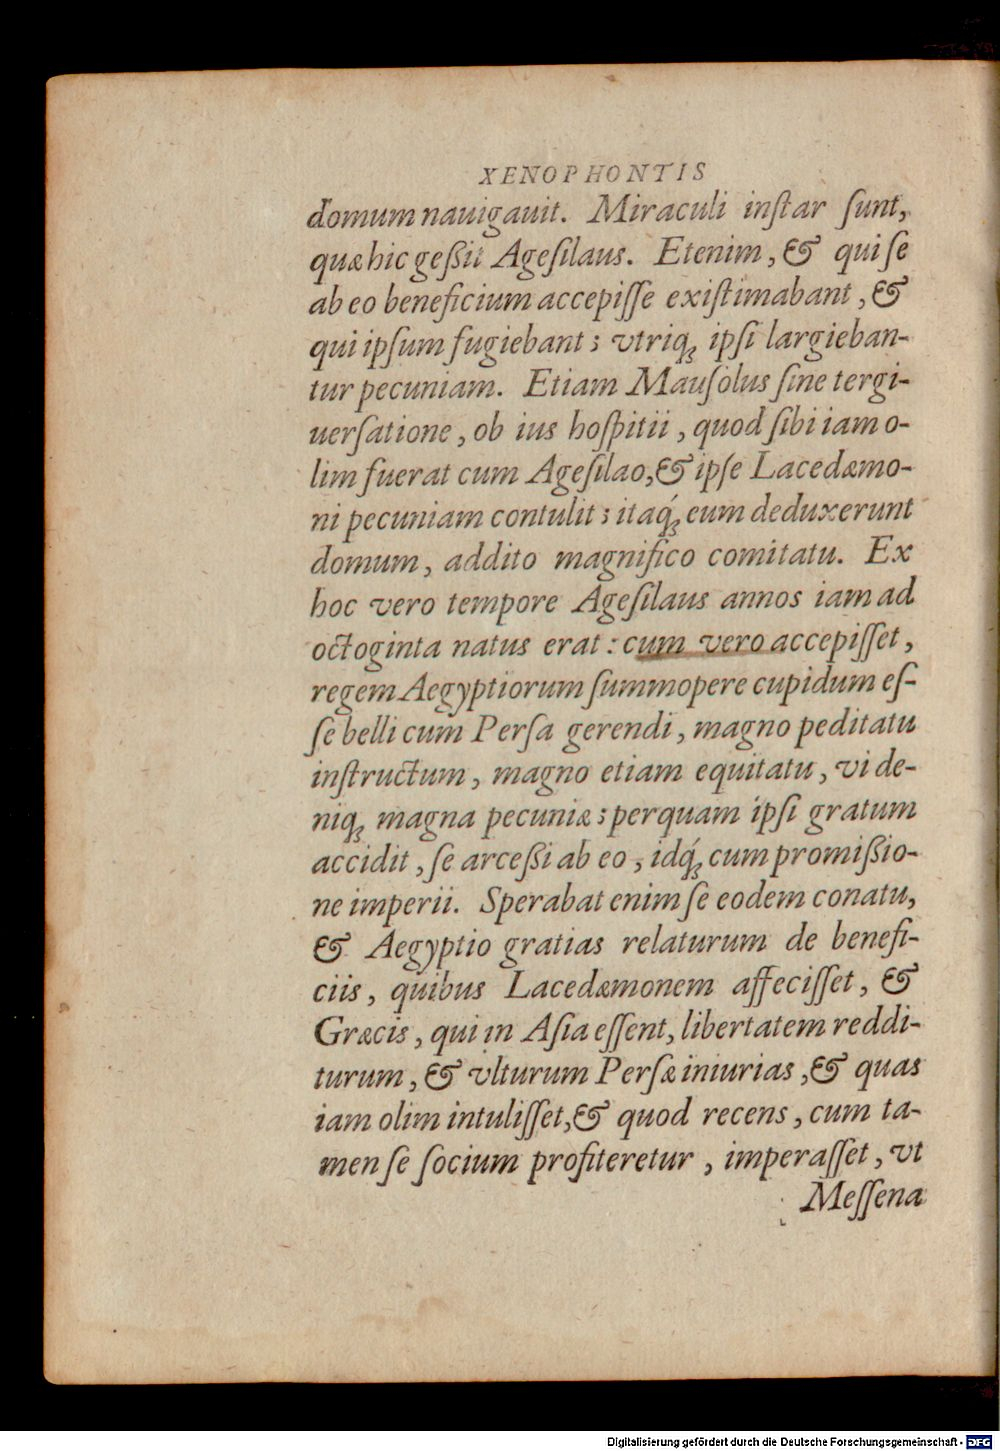 XENOPHONTIS
domum nauigauit. Miraculi inſtar ſunt,
quæ hic geßit Ageſilaus. Etenim, & qui ſe
ab eo beneficium accepiſſe exiſtimabant, &
qui ipſum fugiebant; vtriq; ipſi largieban-
tur pecuniam. Etiam Mauſolus ſine tergi-
uerſatione, ob ius hoſpitii, quod ſibi iam o-
lim fuerat cum Ageſilao, & ipſe Lacedæmo-
ni pecuniam contulit; itaq́; eum deduxerunt
domum, addito magnifico comitatu. Ex
hoc vero tempore Ageſilaus annos iam ad
octoginta natus erat: cum vero accepiſſet,
regem Aegyptiorum ſummopere cupidum eſ-
ſe belli cum Perſa gerendi, magno peditatu
inſtructum, magno etiam equitatu, vi de-
niq; magna pecuniæ; perquam ipſi gratum
accidit, ſe arceßi ab eo, idq́; cum promißio-
ne imperii. Sperabat enim ſe eodem conatu,
& Aegyptio gratias relaturum de benefi-
ciis, quibus Lacedæmonem affeciſſet, &
Græcis, qui in Aſia eſſent, libertatem reddi-
turum, & vlturum Perſæ iniurias, & quas
iam olim intuliſſet, & quod recens, cum ta-
men ſe ſocium profiteretur, imperaſſet, vt
Meſſena
Digitalisierung gefördert durch die Deutsche Forschungsgemeinschaft - DFG